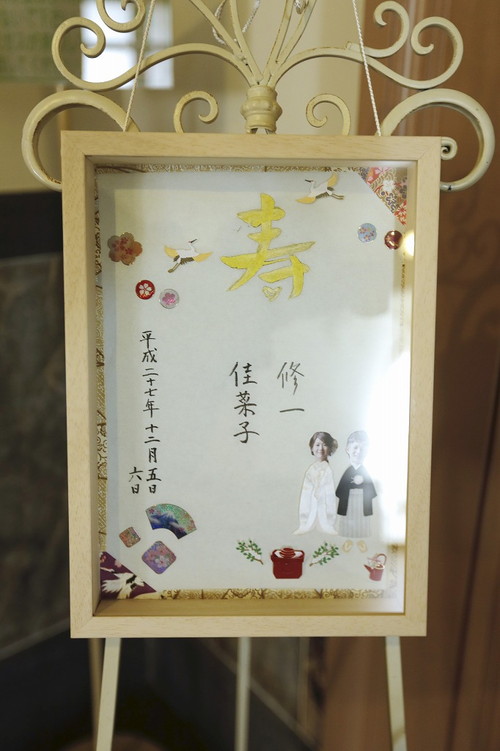 寿
修一
佳菜子
平成二十七年十二月五日
六日